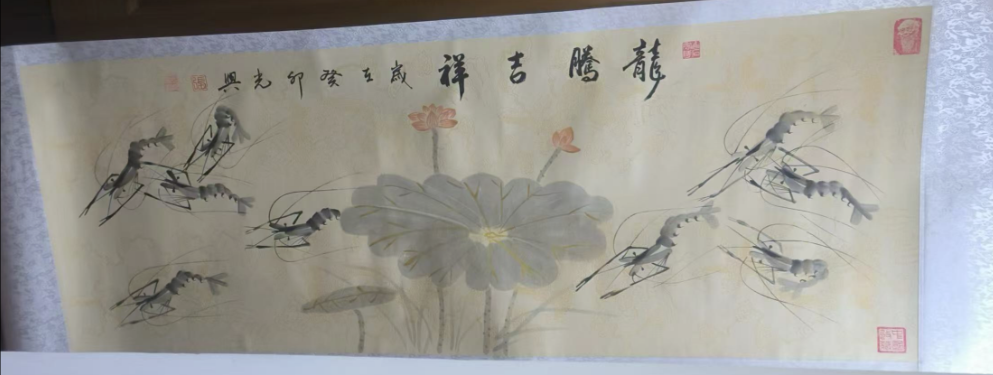 龍騰吉祥歲在癸卯光興